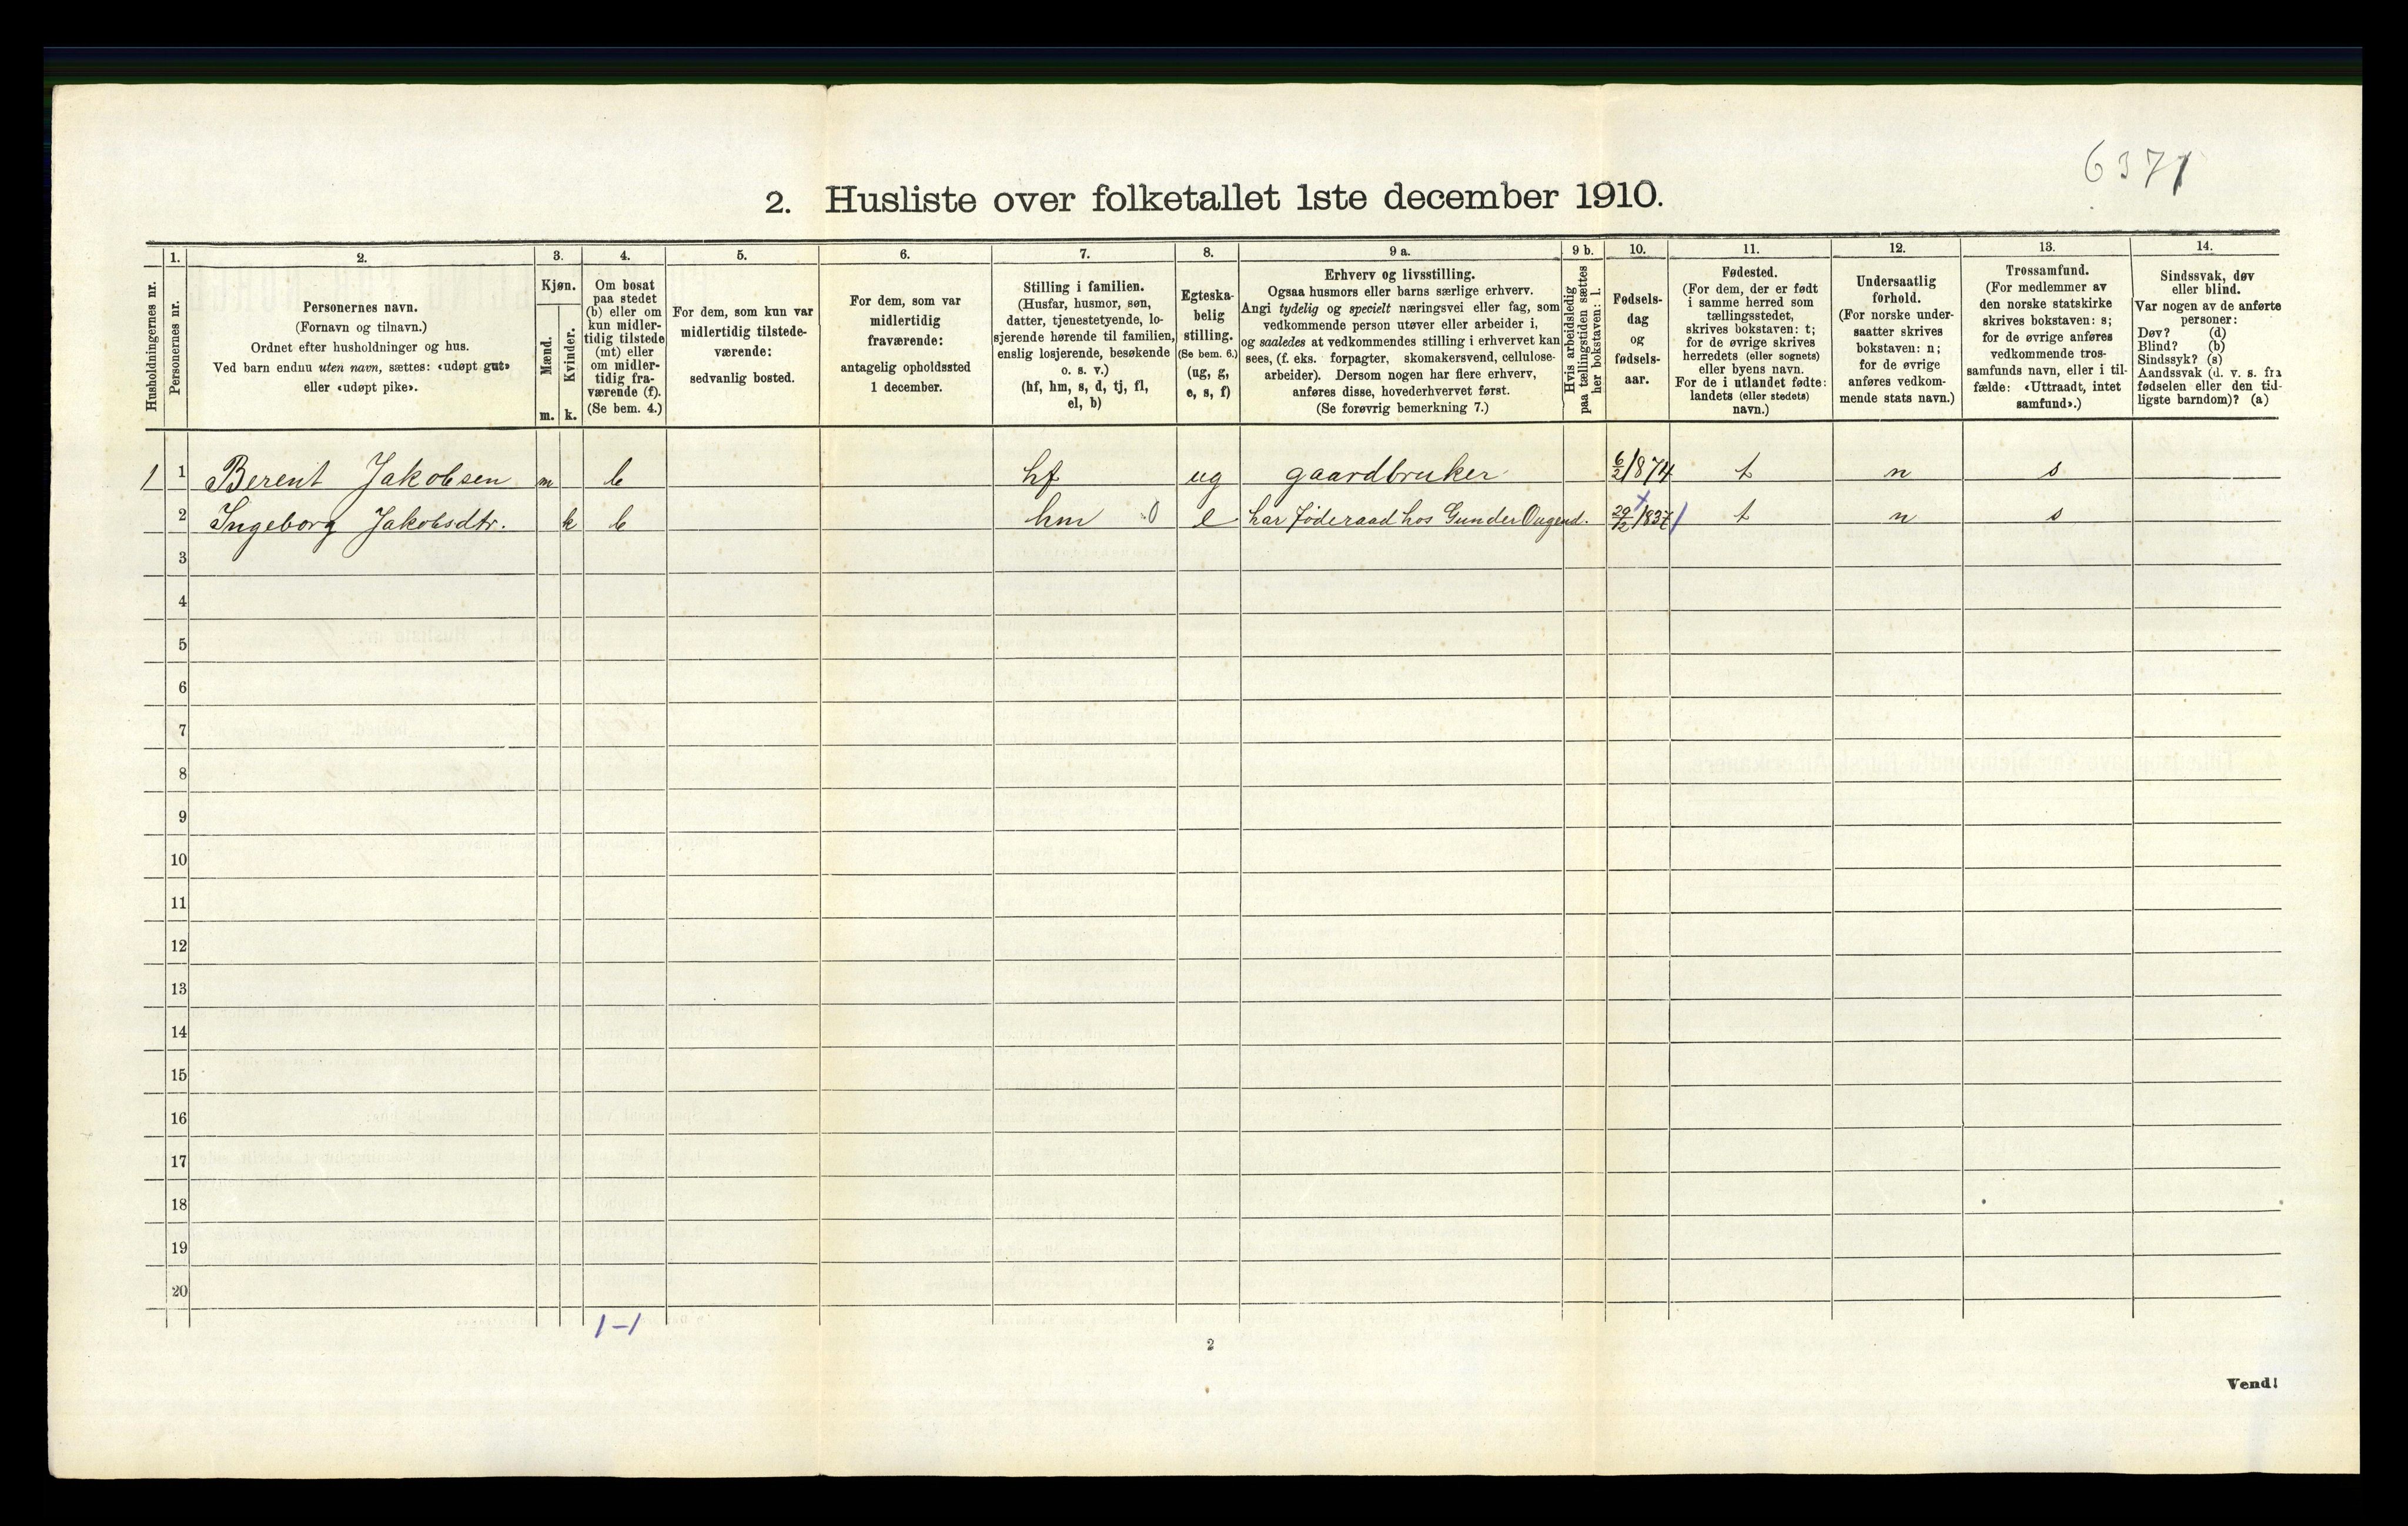 6371
2. Husliste over folketallet 1ste december 1910.
Husholdningernes nr.
1.
Personernes nr.
2.
Personernes navn.
(Fornavn og tilnavn.)
Ordnet efter husholdninger og hus.
Ved barn endnu uten navn, sættes: «udøpt gut»
eller «udøpt pike».
3.
Kjøn.
Mænd.
Kvinder.
m. k.
4.
Om bosat
paa stedet
(b) eller om
kun midler-
tidig tilstede
(mt) eller
om midler-
tidig fra-
værende (f).
(Se bem. 4.)
5.
For dem, som kun var
midlertidig tilstede-
værende:
sedvanlig bosted.
6.
For dem, som var
midlertidig
fraværende:
antagelig opholdssted
1 december.
7.
Stilling i familien.
(Husfar, husmor, søn,
datter, tjenestetyende, lo-
sjerende hørende til familien,
enslig losjerende, besøkende
o. s. v.)
(hf, hm, s, d, tj, fl,
el, b)
8.
Egteska-
belig
stilling.
(Se bem. 6.)
(ug, g,
e, s, f)
9 a.
Erhverv og livsstilling.
Ogsaa husmors eller barns særlige erhverv.
Angi tydelig og specielt næringsvei eller fag, som
vedkommende person utøver eller arbeider i,
og saaledes at vedkommendes stilling i erhvervet kan
sees, (f. eks. forpagter, skomakersvend, cellulose-
arbeider). Dersom nogen har flere erhverv,
anføres disse, hovederhvervet først.
(Se forøvrig bemerkning 7.)
9 b.
Hvis arbeidsledig
paa tællingstiden sættes
her bokstaven: l.
10.
Fødsels-
dag
og
fødsels-
aar.
11.
Fødested.
(For dem, der er født
i samme herred som
tællingsstedet,
skrives bokstaven: t;
for de øvrige skrives
herredets (eller sognets)
eller byens navn.
For de i utlandet fødte:
landets (eller stedets)
navn.)
12.
Undersaatlig
forhold.
(For norske under-
saatter skrives
bokstaven: n;
for de øvrige
anføres vedkom-
mende stats navn.)
13.
Trossamfund.
(For medlemmer av
den norske statskirke
skrives bokstaven: s;
for de øvrige anføres
vedkommende tros-
samfunds navn, eller i til-
fælde: «Uttraadt, intet
samfund».)
14.
Sindssvak, døv
eller blind.
Var nogen av de anførte
personer:
Døv? (d)
Blind? (b)
Sindssyk? (s)
Aandssvak (d. v. s. fra
fødselen eller den tid-
ligste barndom)? (a)
1 1 Berent Jakobsen m b hf ug gaardbruker 6/2 1874 t n s
2 Ingeborg Jakobsdtr. k b hm 0 e har Føderaad hos Gunder t n s
3
4
5
6
7
8
9
10
11
12
13
14
15
16
17
18
19
20
1-1
2
Vend!